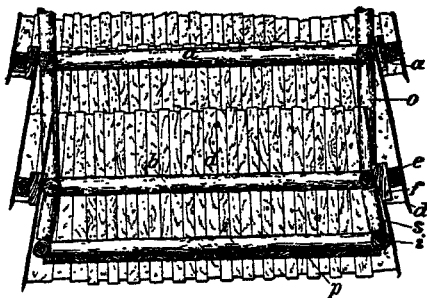 a
a
o
b d
e
f
d
s
i
p